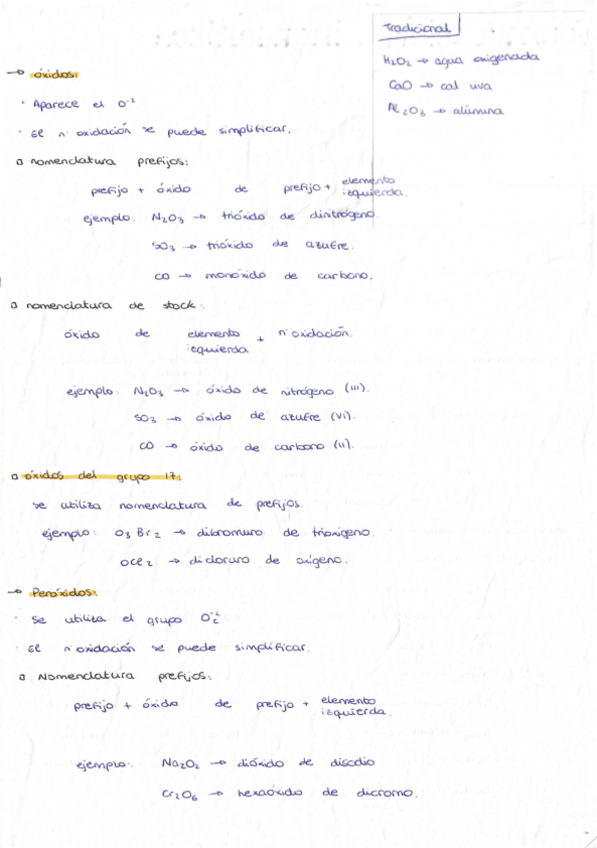 Tradicional
H2O2 → agua oxigenada
CaO → cal viva
Al2O3 → alúmina
→ óxidos:
· Aparece el O-2
· El nº oxidación se puede simplificar.
▫ nomenclatura prefijos:
prefijo + óxido de prefijo + elemento izquierda.
ejemplo: N2O3 → trióxido de dinitrógeno.
SO3 → trióxido de azufre.
CO → monóxido de carbono.
▫ nomenclatura de stock:
óxido de elemento izquierda + nº oxidación.
ejemplo: N2O3 → óxido de nitrógeno (III).
SO3 → óxido de azufre (VI).
CO → óxido de carbono (II).
▫ óxidos del grupo 17:
se utiliza nomenclatura de prefijos.
ejemplo: O3Br2 → dibromuro de trioxígeno.
OCl2 → dicloruro de oxígeno.
→ Peróxidos:
· Se utiliza el grupo O2-2
· El nº oxidación se puede simplificar.
▫ Nomenclatura prefijos:
prefijo + óxido de prefijo + elemento izquierda.
ejemplo: Na2O2 → dióxido de disodio
Cr2O6 → hexaóxido de dicromo.